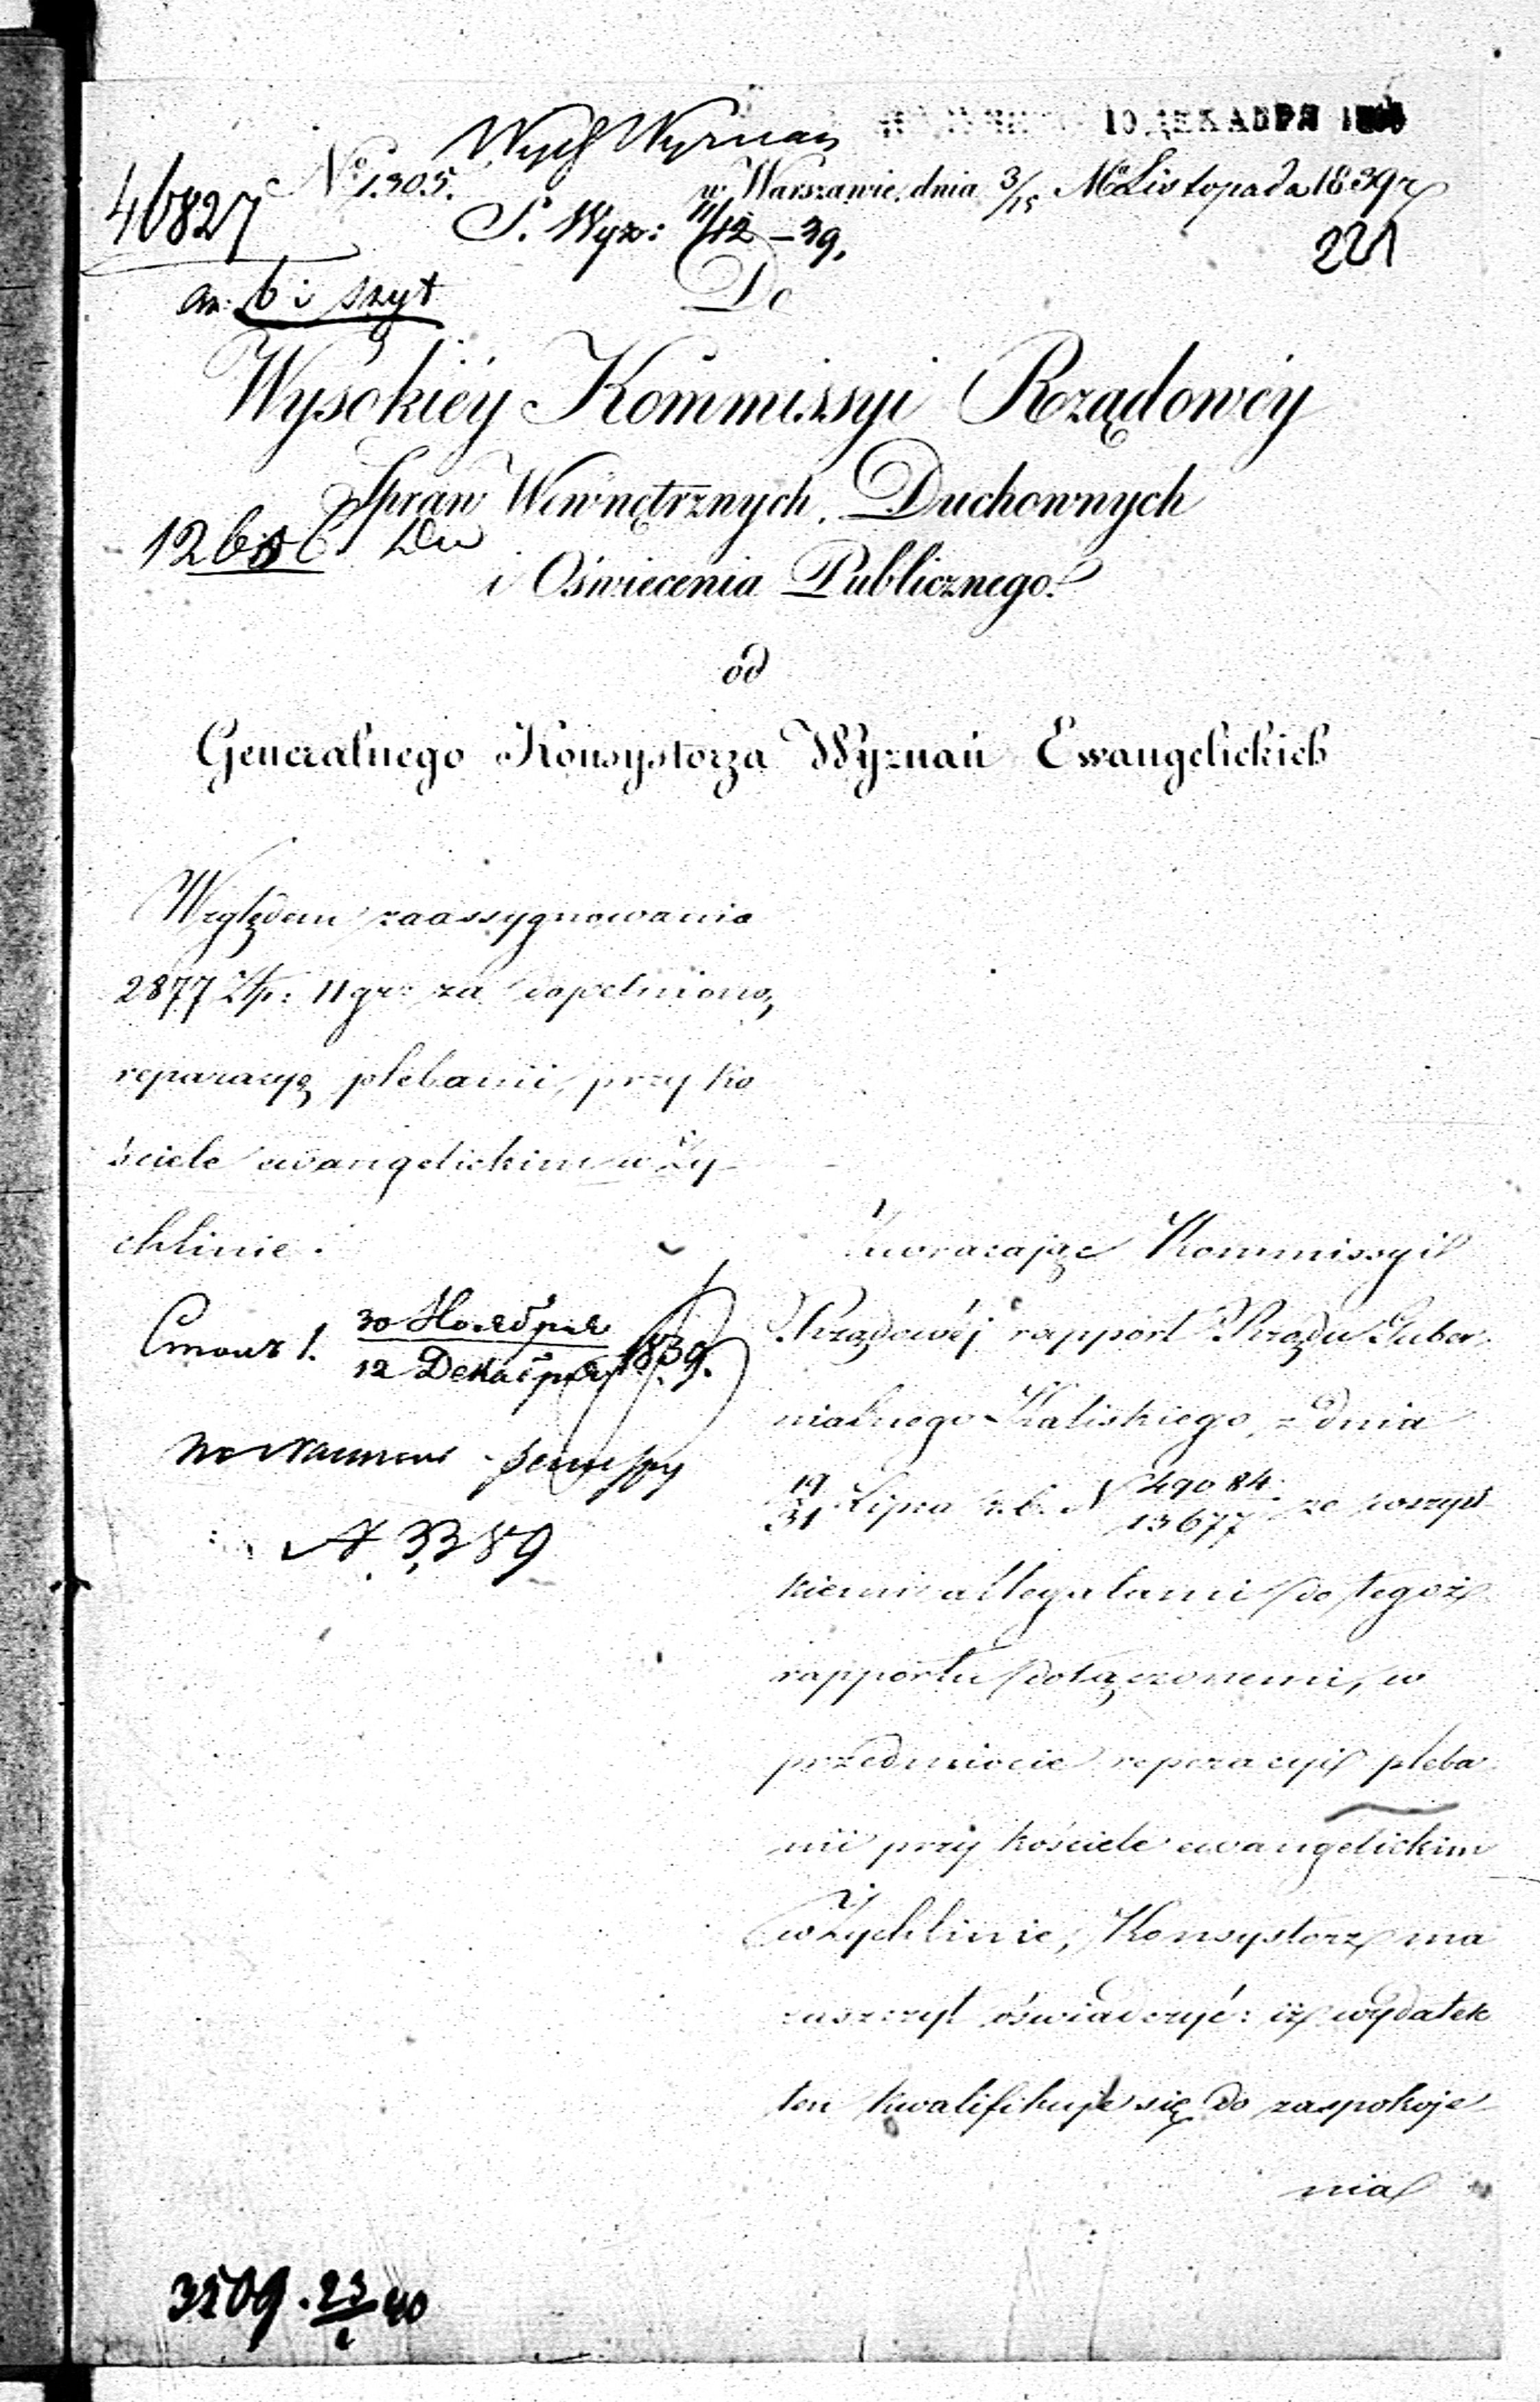 Wych Wyznań
10 ДЕКАБРЯ
46827
№ 1305.
w Warszawie, dnia 3/15 Mca Listopada 1839 r
S. Wyz: 11/12 – 39.
221
6 i szyt
Do
Wysokiéy Kommissyi Rządowéy
Spraw Wewnętrznych, Duchownych
i Oświecenia Publicznego.
od
Generalnego Konsystorza Wyznań Ewangelickich
Względem zaassygnowania
2877 Złp: 11 gr: za dopełnioną
reparacyę plebanii, przy ko
ściele ewangelickim w Ży-
chlinie.
30 Ноября
12 Декабря 1839.
№ 3389
Zwracając Kommissyi
Rządowéj rapport Rządu Guber-
nialnego Kaliskiego, z dnia
19/31 Lipca r. b. N 49084/13677 ze wszyst-
kiemi allegatami do tegoż
rapportu dołączonemi, w
przedmiocie reperacyi pleba-
nii przy kościele ewangelickim
w Żychlinie, Konsystorz ma
zaszczyt oświadczyć: iż wydatek
ten kwalifikuje się do zaspokoje-
nia
3509. 23/1 40